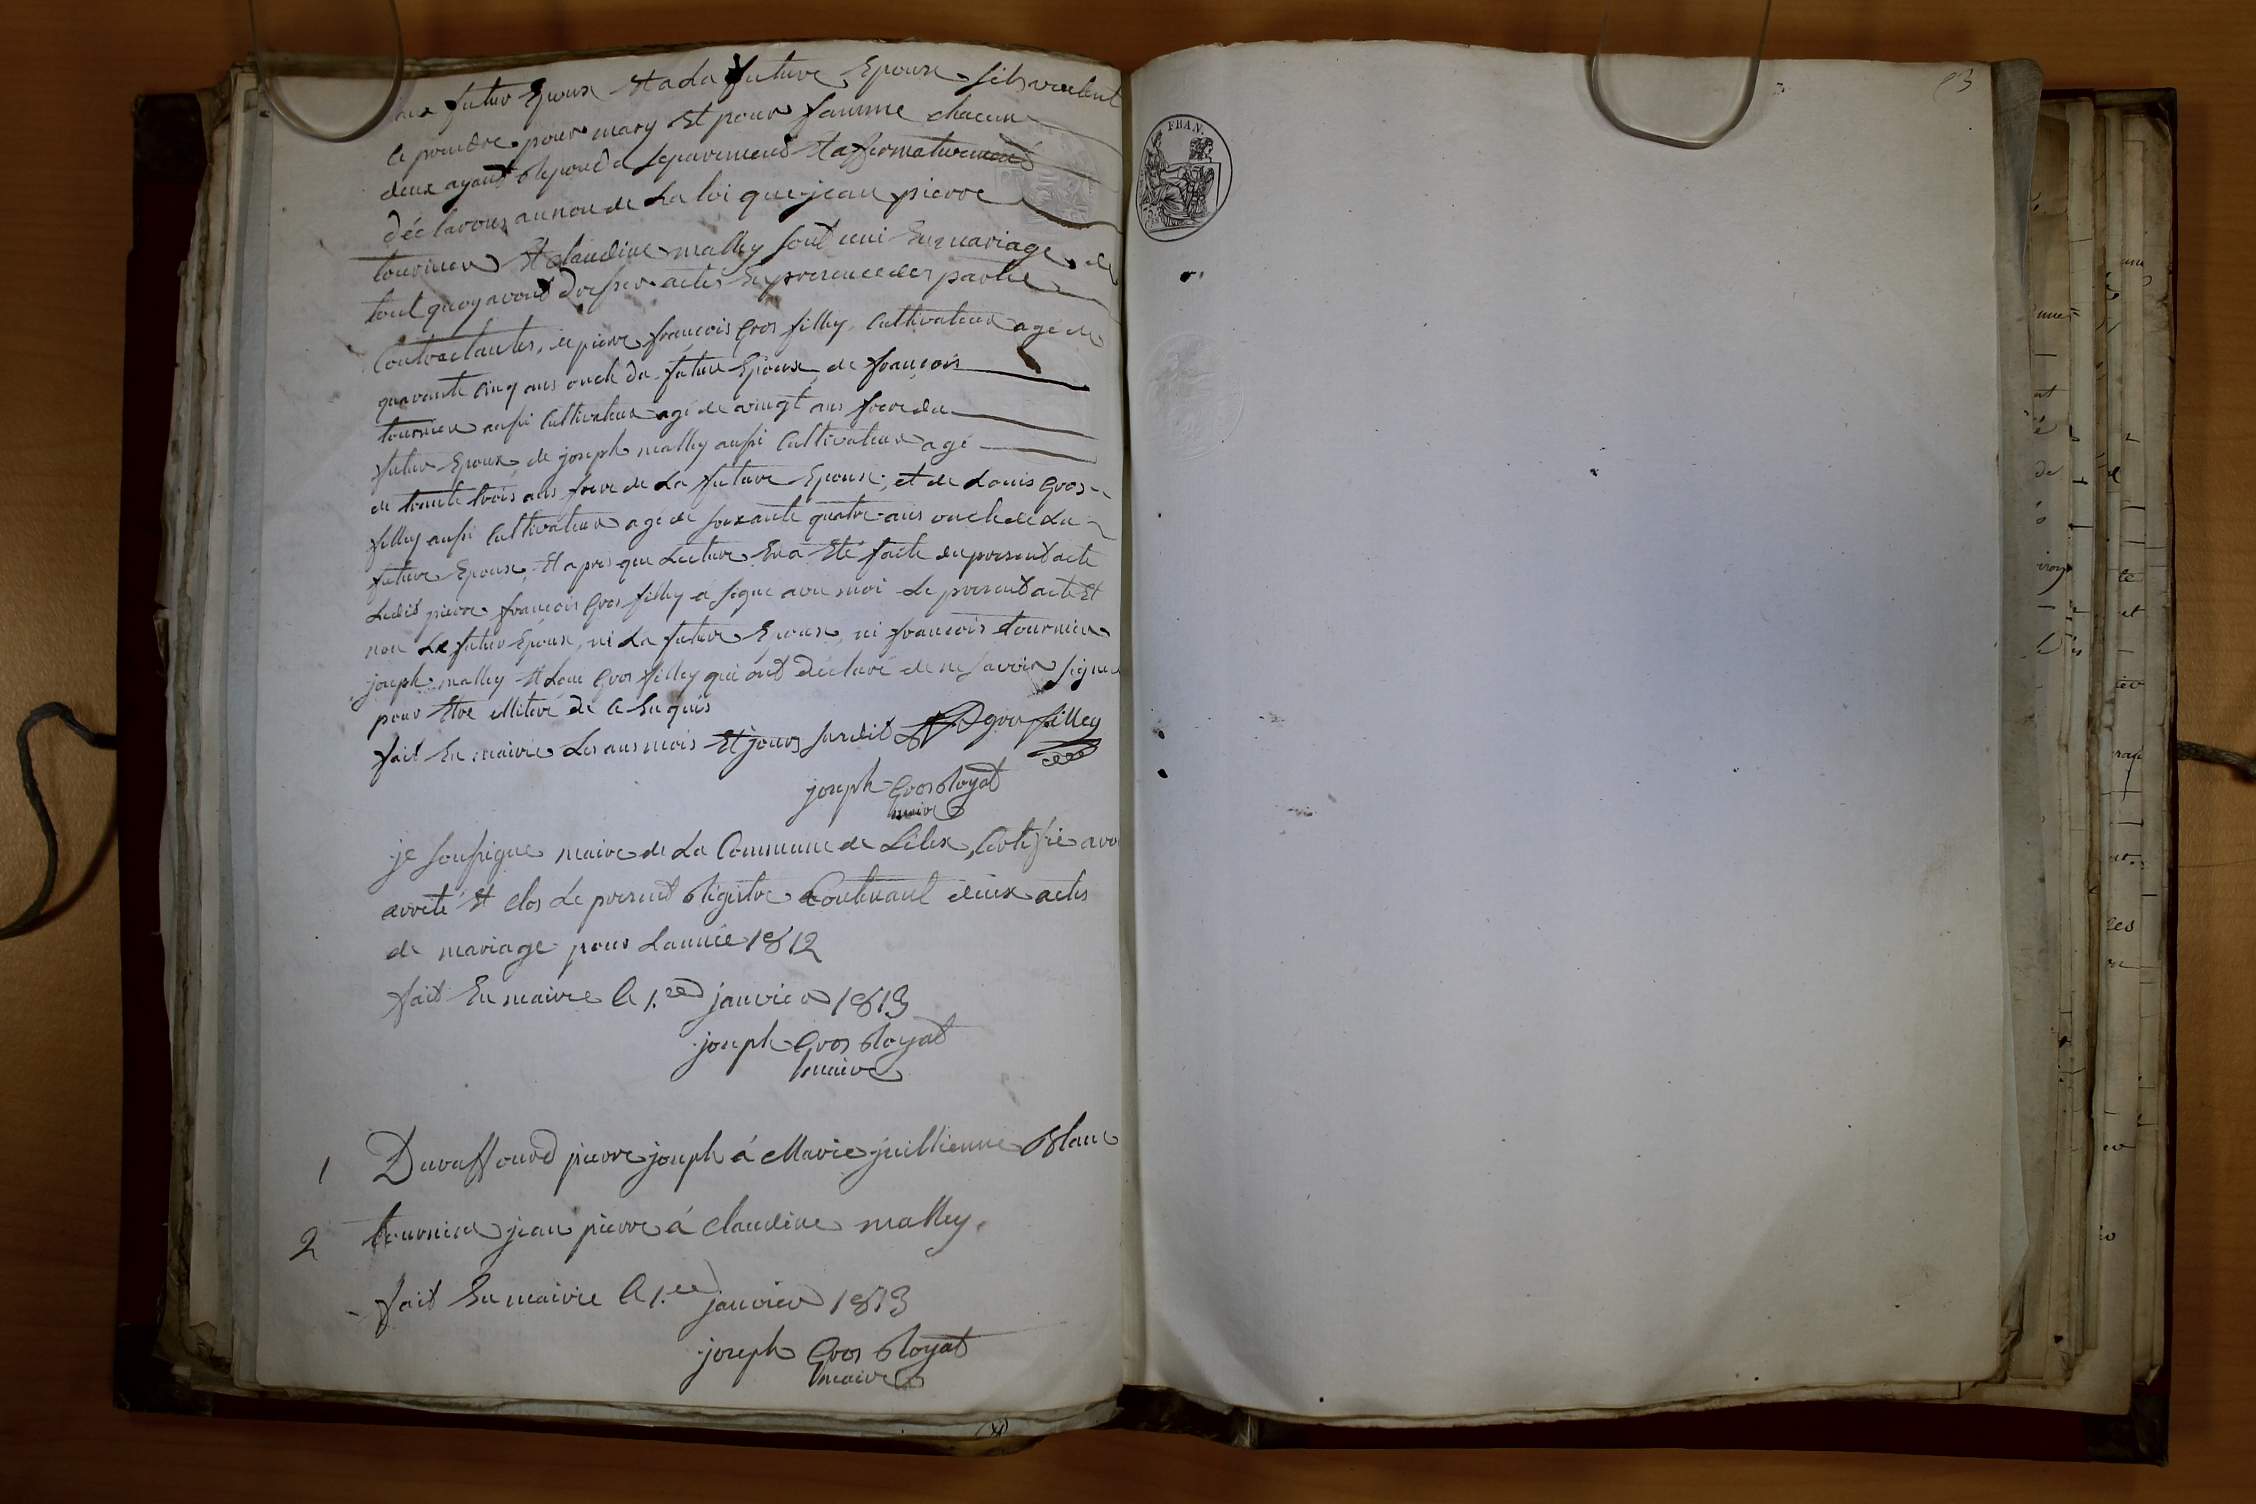 aux futur Epoux Et a La future Epouse silsveulent
ce prendre pour mary Et pour famme chacun
deux ayant Repondu separement Et affermativement
déclarons aunon de La loi que jean pierre
tournier Et Claudine malley sont uni En mariage de
tout quoy avons dresser actes En presence des partie
Contractantes, de pierre françois gros filley Cultivateur agé de
quarante cinq ans oncle du future Epoux, de françois
tournier aussi Cultivateur agé de vingt ans frere du
futur Epoux, de joseph malley aussi Cultivateur agé
de trante trois ans frere de La future Epouse, et de Louis gros
filley aussi Cultivateur agé de soixante quatre ans oncle de La
future Epouse, Et apres que Lecture En a Eté faite du present acte
Ledit pierre françois gros filley a signe avec moi Le present acte Et
non Le futur Epoux, ni La future Epouse, ni françois tournier
joseph malley Et Loui gros filley qui ont déclaré de ne savoir signer
pour Etre illiteré de ce Enquis
fait En mairie Les ans mois Et jours susdit gros filley
joseph Gros Royat
maire
je soussigne maire de La Commune de Lélex, Certifie avoi
arreté Et clos Le present Régistre Contenant deux actes
de mariage pour Lannée 1812
fait En mairie le 1.er janvier 1813
joseph Gros Royat
maire
1 Duraffourd pierre joseph á Marie juillienne Blanc
2 tournier jean pierre á Claudine malley.
fait En mairie le 1.er janvier 1813
joseph Gros Royat
maire
FRAN.